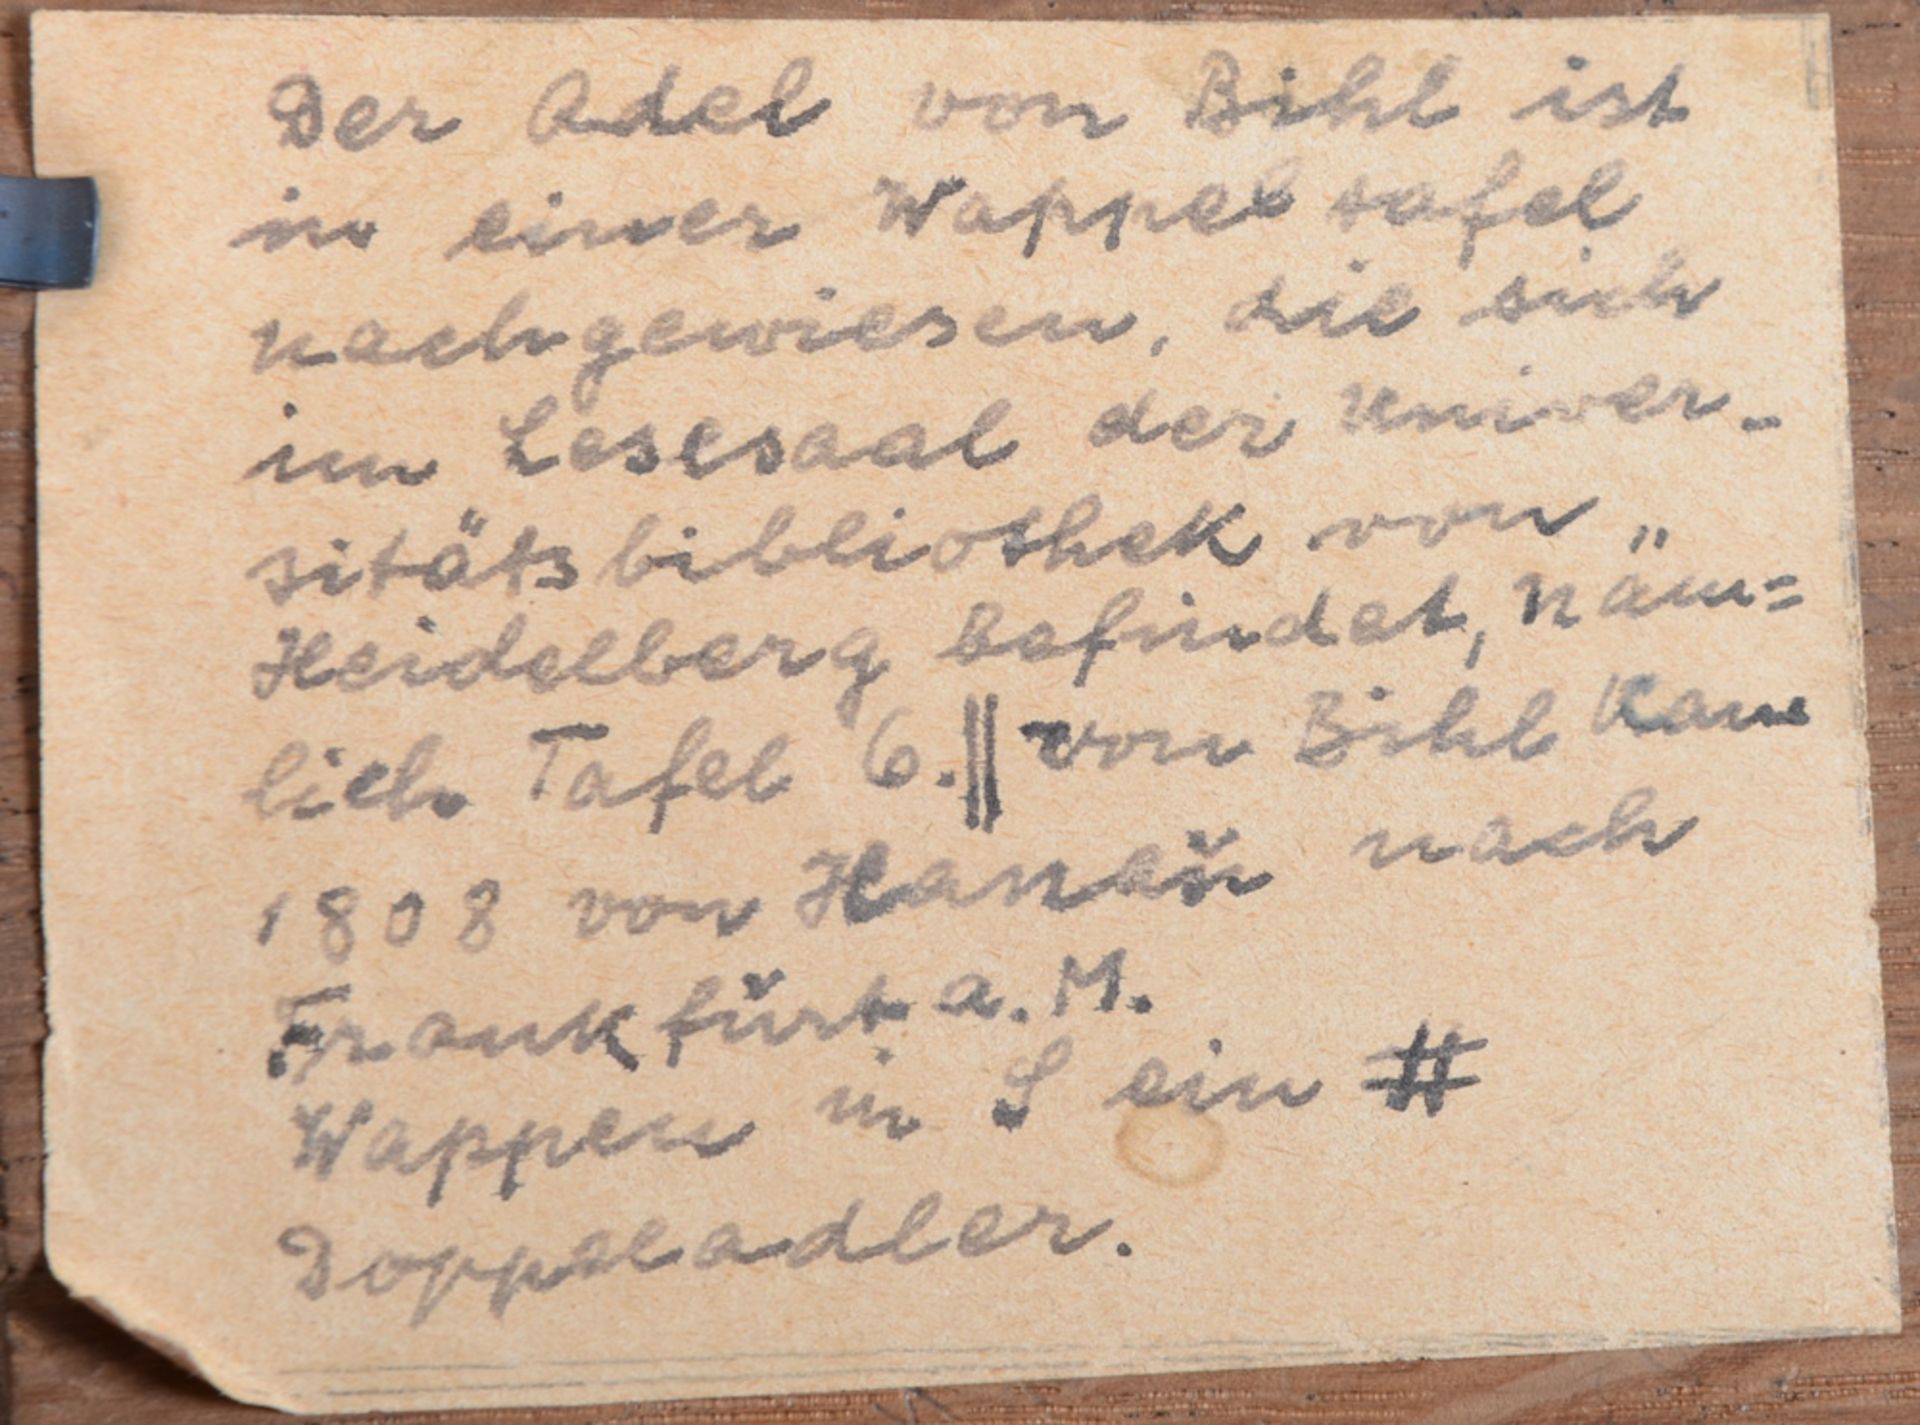 Der Adel von Bihl ist
in einer Wappel tafel
nachgewiesen, die sich
im Lesesaal der Univer-
sitätsbibliothek von
Heidelberg befindet, näm=
lich Tafel 6. || von Bihl kam
1808 von Hanau nach
Frankfurt a. M.
Wappen in S ein #
Doppeladler.